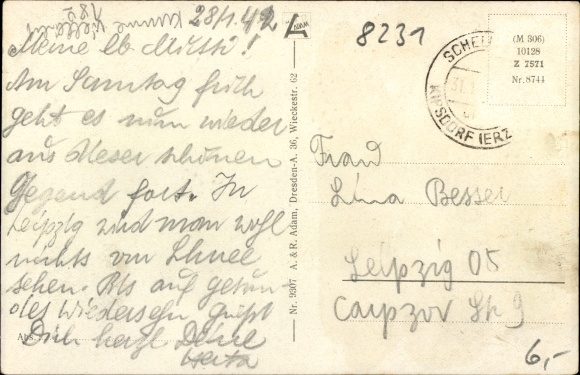 28/1.42
Meine lb. Mutti!
Am Samstag früh
geht es nun wieder
aus dieser schönen
Gegend fort. In
Leipzig wird man wohl
nichts von Schnee
sehen. Bis auf gesun-
des Wiedersehn grüßt
Dich herzl. Deine
Herta
Abs.
Nr. 9307 A. & R. Adam, Dresden-A. 36, Wieckestr. 62
ADAM
8231
(M 306)
10128
Z 7571
Nr. 8744
KIPSDORF (ERZ
Frau
Lina Besser
Leipzig O5
Carpzov Str 9
6,-